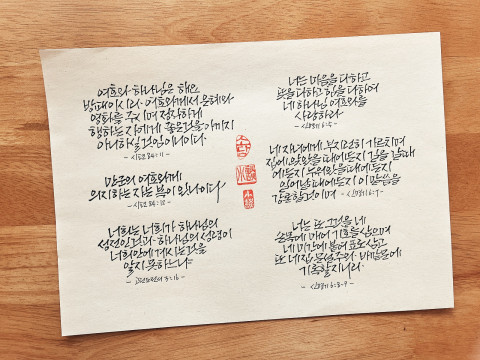 여호와 하나님은 해요
방패이시라 여호와께서 은혜와
영화를 주시며 정직하게
행하는 자에게 좋은것을 아끼지
아니하실 것임이니이다
- 시편 84:11 -
만군의 여호와여
의지하는 자는 복이 있나이다
- 시편 84:12 -
너희는 너희가 하나님의
성전인것과 하나님의 성령이
너희안에 계시는것을
알지 못하느냐
- 고린도전서 3:16 -
너는 마음을 다하고
뜻을 다하고 힘을 다하여
네 하나님 여호와를
사랑하라
- 신명기 6:5 -
네 자녀에게 부지런히 가르치며
집에 앉았을 때에든지 길을 갈 때
에든지 누워있을 때에든지
일어날 때에든지 이 말씀을
강론할것이며 - 신명기 6:7 -
너는 또 그것을 네
손목에 매어 기호를 삼으며
네 미간에 붙여 표로 삼고
또 네 집 문설주와 바깥문에
기록할지니라
- 신명기 6:8-9 -